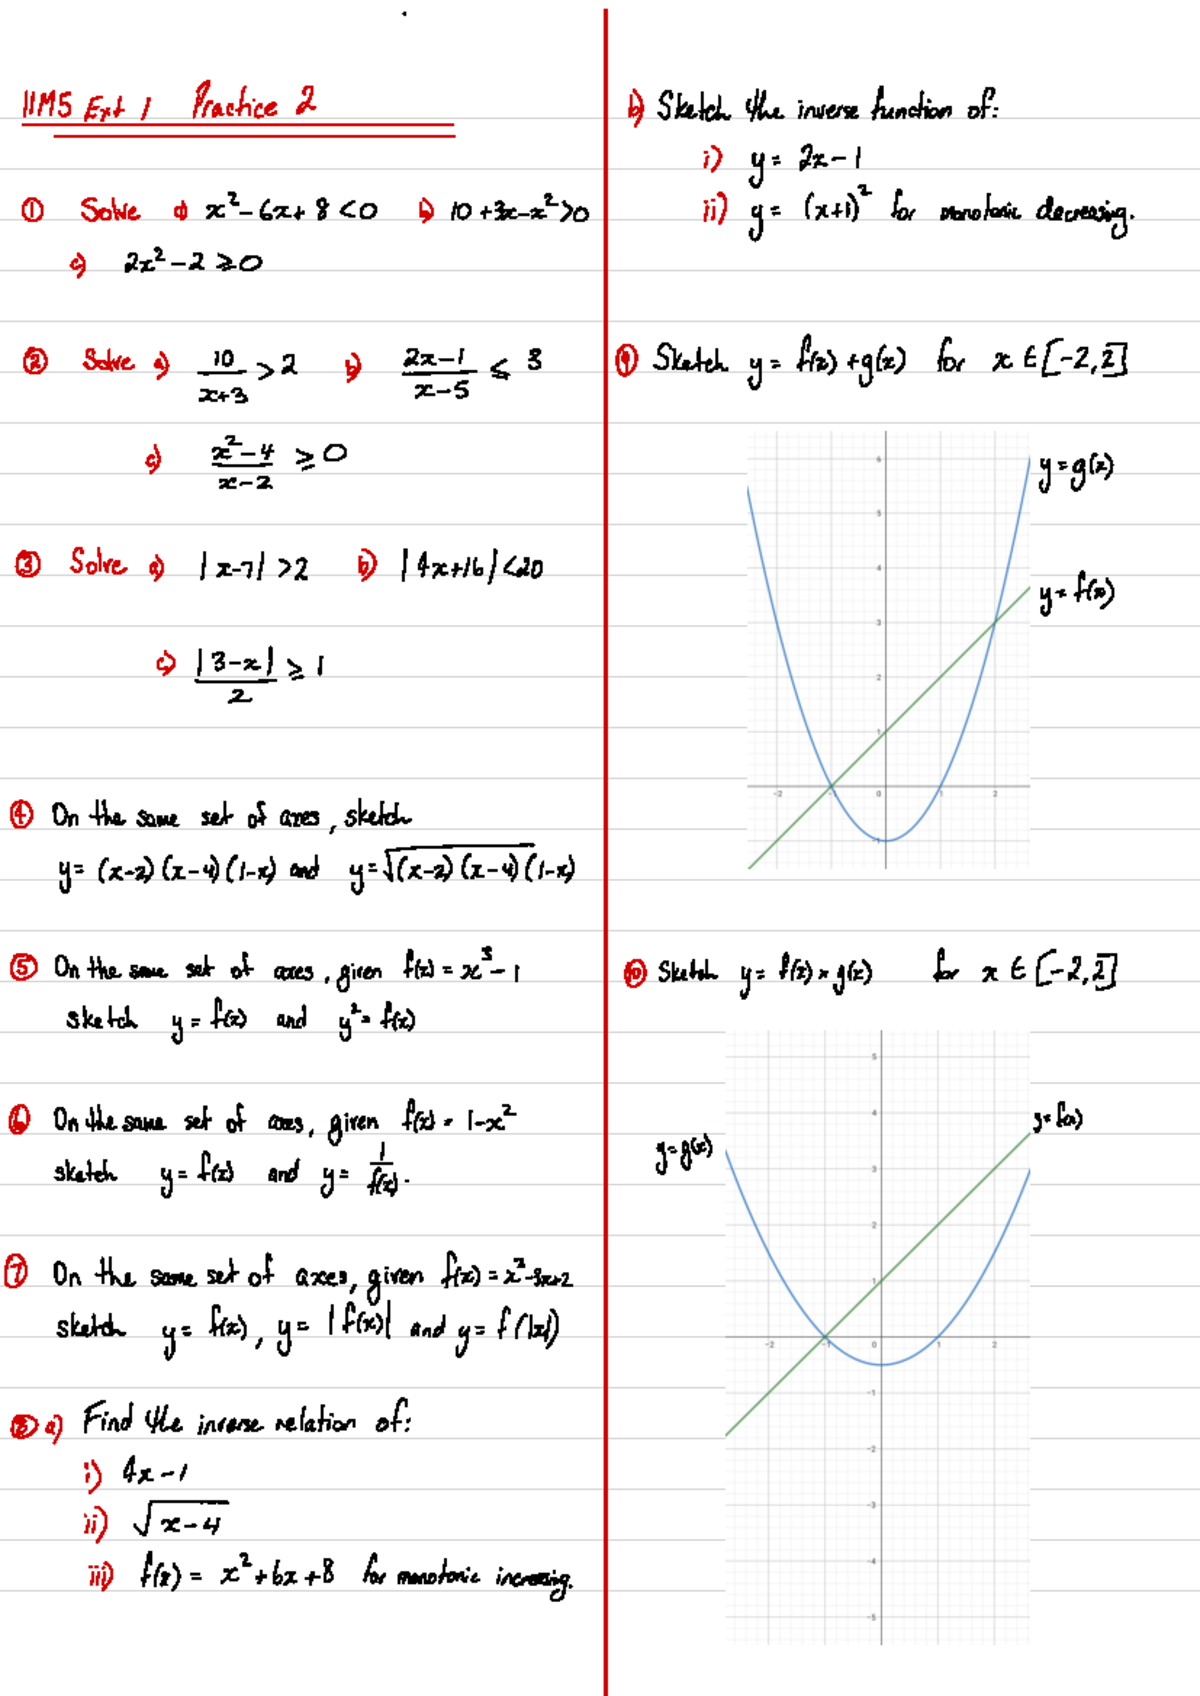 11M5 Ext 1 Practice 2
① Solve a) x² - 6x + 8 < 0 b) 10 + 3x - x² > 0
c) 2x² - 2 ≥ 0
② Solve a) 10/(x+3) > 2 b) (2x-1)/(x-5) ≤ 3
c) (x²-4)/(x-2) ≥ 0
③ Solve a) |x-7| > 2 b) |4x+16| < 20
c) |3-x|/2 ≥ 1
④ On the same set of axes, sketch
y = (x-2)(x-4)(1-x) and y = √((x-2)(x-4)(1-x))
⑤ On the same set of axes, given f(x) = x³ - 1
sketch y = f(x) and y² = f(x)
⑥ On the same set of axes, given f(x) = 1-x²
sketch y = f(x) and y = 1/f(x).
⑦ On the same set of axes, given f(x) = x²-3x+2
sketch y = f(x), y = |f(x)| and y = f(|x|)
⑧ a) Find the inverse relation of:
i) 4x - 1
ii) √(x-4)
iii) f(x) = x² + 6x + 8 for monotonic increasing.
b) Sketch the inverse function of:
i) y = 2x - 1
ii) y = (x+1)² for monotonic decreasing.
⑨ Sketch y = f(x) + g(x) for x ∈ [-2, 2]
y = g(x)
y = f(x)
6
5
4
3
2
1
-2 -1 0 1 2
-1
⑩ Sketch y = f(x) × g(x) for x ∈ [-2, 2]
y = g(x)
y = f(x)
5
4
3
2
1
-2 -1 0 1 2
-1
-2
-3
-4
-5